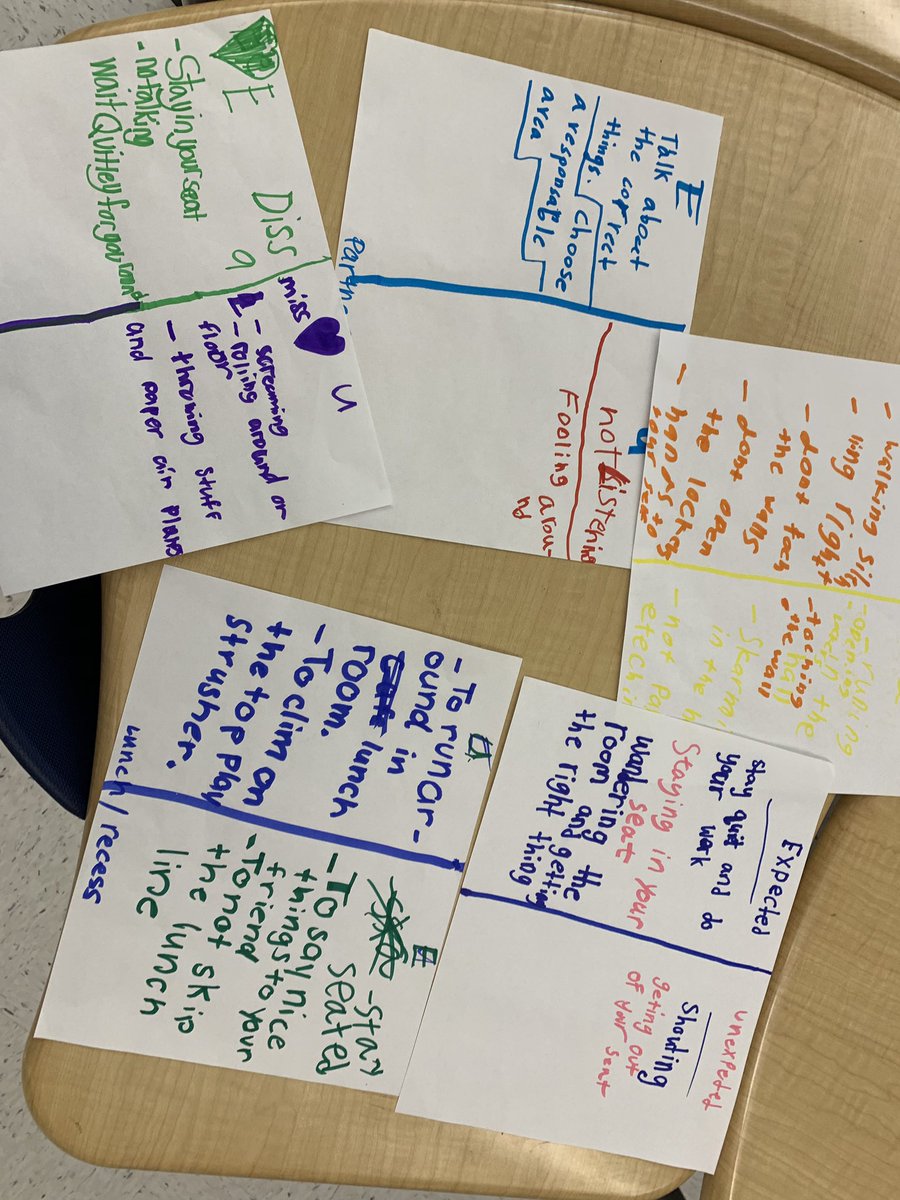 E
- Stay in your seat
- no talking
wait Quitley for your
Diss
miss
U
- screaming
- rolling around or
floor
- throwing stuff
and paper air plane
E
Talk aboct
the correct
things. choose
a responsable
area
Partn-
not Listening
Fooling arou-
nd
- walking
- ing right
- dont toch
the walls
- dont open
the lockers
- hands to
- runing
- opening the
- toching
the wall
hall
in the
- not
- To runar-
ound in
lunch
room.
- To clim on
the top play
strusher.
lunch/recess
E
- Stay
seated
- To say nice
things to your
friend
- To not skip
the lunch
line
Expected
stay quit and do
your work
Staying in your
seat
wankering the
room and getting
the right thing
unexpected
Shouting
geting out
of your seat